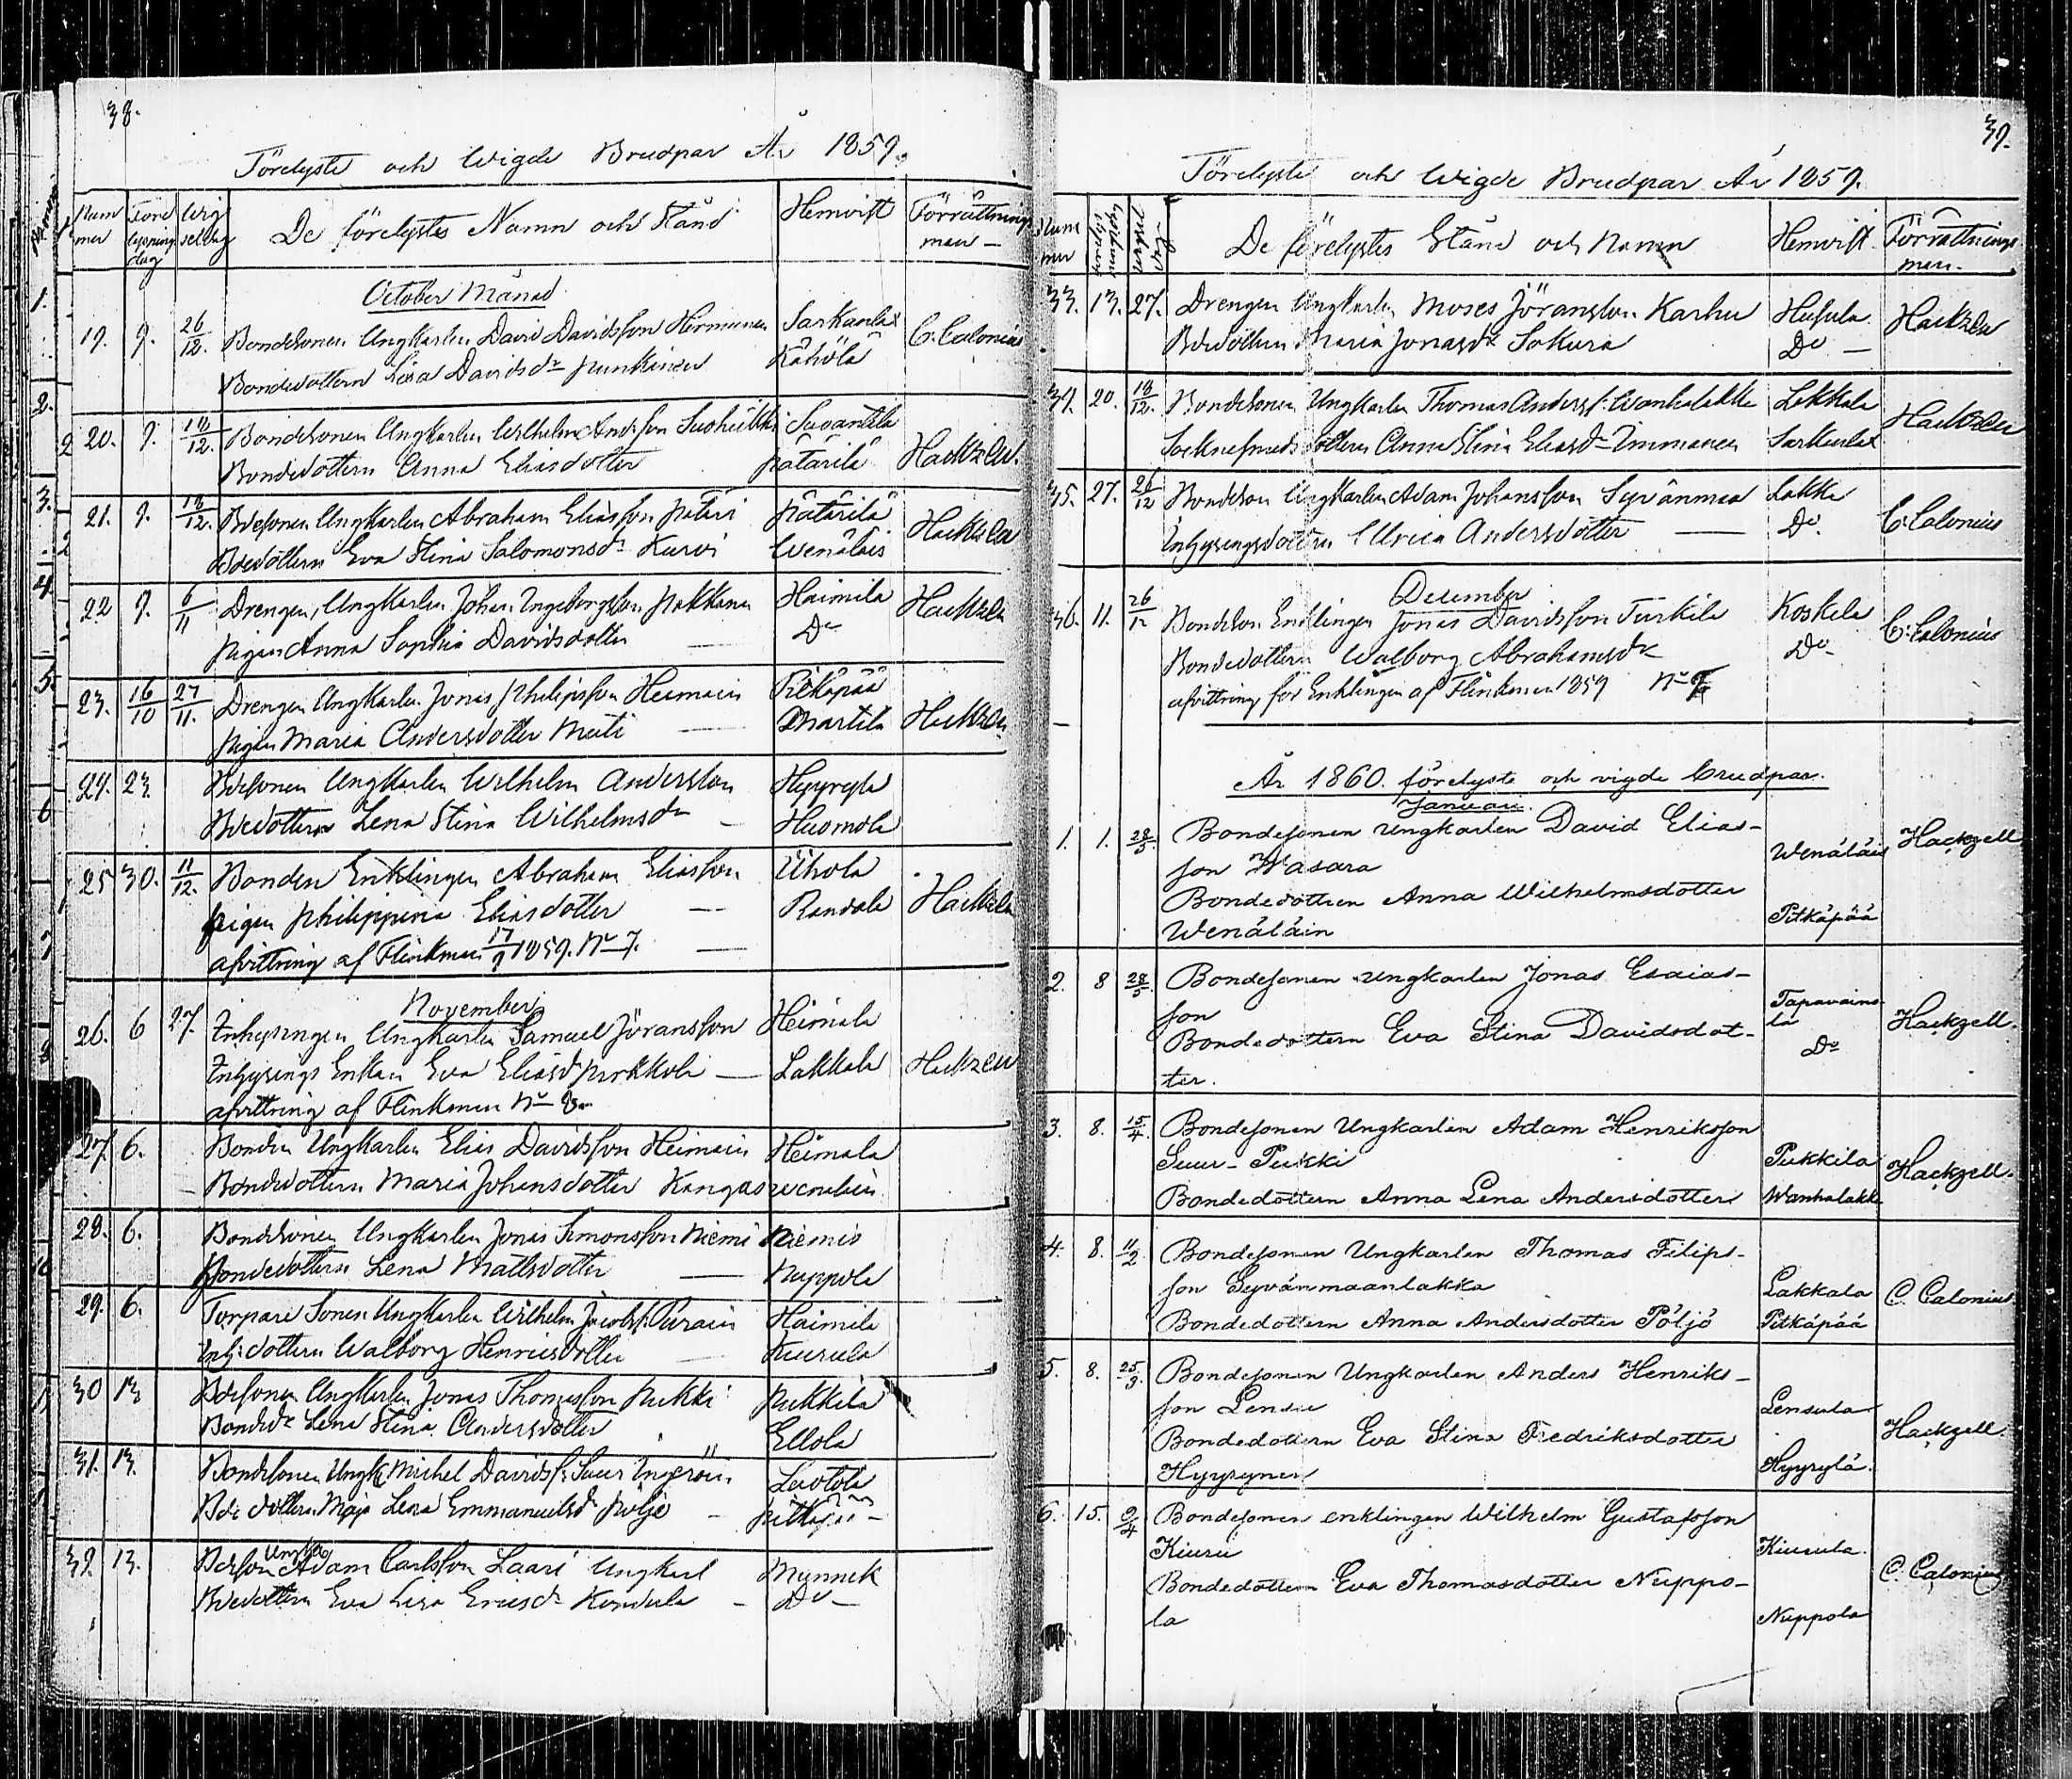 38.
Förelyste och Wigde Brudpar År 1859.
Num mer
Förelysning dag
Wigselldag
De förelystes Namn och Stånd
Hemvist
Förrättnings man
October Månad
19. 9. 26/12. Bondesonen Ungkarlen David Davidsson Sarkanlax C. Calonius
Bondedottern Lisa Davidsdr Punkinen
20. 9. 18/12. Bondesonen Ungkarlen Wilhelm Suvantila
Bondedottern Anna Eliasdotter Pätärilä Hackzell.
21. 9. 18/12. Bdesonen Ungkarlen Abraham Eliasson Pätäri Pätärilä Hackzell
Bdedottern Eva Stina Salomonsdr Kurvi Wenäläis
22 9. 6/11 Drengen, Ungkarlen Johan Ingeborgsson Pakkanen Haimila Hackzell
Pigan Anna Sophia Davidsdotter Do
23. 16/10 27/11. Drengen Ungkarlen Jonas Philipsson Heimain Pitkäpää
Pigan Maria Andersdotter Martila Hackzell
24. 23 Bdesonen Ungkarlen Wilhelm Andersson Hyyrylä
Bdedottern Lena Stina Wilhelmsdr Huomola
25 30. 11/12. Bonden Enklingen Abraham Eliasson Uhola
Pigan Philippina Eliasdotter Randala Hackzell
afvittring af Flinkman 17/9 1859. No 7.
November
26. 6 27. Inhysingen Ungkarlen Samuel Jöransson Heimala
Inhysings Enkan Eva Eliasdr Lakkala Hackzell
afvittring af Flinkman No 8
27. 6. Bonden Ungkarlen Elias Davidsson Heimain Heimala
Bondedottern Maria Johansdotter Kangas
28. 6. Bondesonen Ungkarlen Jonas Simonsson Niemi Niemis
Bondedottern Lena Mattsdotter Nuppola
29. 6. Torpare Sonen Ungkarlen Wilhelm Jacobss. Purain Haimila
Inh: dottern Walborg Henricsdotter Kiurula
30 13 Bdesonen Ungkarlen Jonas Thomasson Pukki Pukkila
Bondedr Lena Stina Andersdotter Ellola
31. 13. Bondesonen Ungk Michel Davidss. Suur Ingeröin Levotola
Bde dottern Maja Lena Emmanuelsdr Pöljö Pitkäpää
32. 13. Bdeson Ungk Adam Carlsson Laari Ungkarl Munnik
Bdedottern Eva Lisa Ericsdr Kondula Do
39.
Förelyste och Wigde Brudpar År 1859.
Num mer
De förelystes Stånd och Namn
Hemvist
Förrättnings man.
33. 13. 27. Drengen Ungkarlen Moses Jöransson Karhu Hackzell
Bdedottern Maria Jonasdr Sokura Do
34. 20. 18/12. Bondesonen Ungkarlen Thomas Anderss. Wanhalakka Lakkala Hackzell
dottern Anna Stina Eliasdr Immanen Sarkanlax
35. 27. 26/12 Bondeson Ungkarlen Adam Johansson Syvänmaa Lakka C. Calonius
Inhysingsdottern Ulrica Andersdotter Do
December
36. 11. 26/12 Bondeson Enklingen Jonas Davidsson Turkila Koskela C. Calonius
Bondedottern Walborg Abrahamsdr Do
afvittring för Enklingen af Flinkman 1859 No
År 1860. förelyste och vigde brudpar.
Januari.
1. 1. 28/5 Bondesonen ungkarlen David Elias-
son Wasara Wenäläis Hackzell
Bondedottern Anna Wilhelmsdotter
Wenäläin Pitkäpää
2. 8 28/5. Bondesonen Ungkarlen Jonas Esaias-
son Tapavainola Hackzell.
Bondedottern Eva Stina Davidsdot-
ter. Do
3. 8. 15/4. Bondesonen Ungkarlen Adam Henriksson
Suur-Pukki Pukkila Hackzell.
Bondedottern Anna Lena Andersdotter Wanhalakk
4. 8. 11/2. Bondesonen Ungkarlen Thomas Filips-
son Syvänmaanlakka Lakkala C. Calonius
Bondedottern Anna Andersdotter Pöljö Pitkäpää
5. 8. 25/3. Bondesonen Ungkarlen Anders Henriks-
son Lensu Lensula
Bondedottern Eva Stina Fredriksdotter Hackzell.
Hyyrynen Hyyrylä.
6. 15. 9/4 Bondesonen enklingen Wilhelm Gustafsson
Kiuru Kiurula. C. Calonius
Bondedottern Eva Thomasdotter Nuppo-
la Nuppola